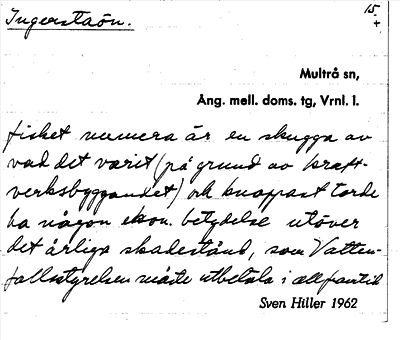 Ingerstaön.
15.
+
Multrå sn,
Ång. mell. doms. tg, Vrnl. l.
fisket numera är en skugga av
vad det varit (på grund av kraft-
verksbyggandet) och knappast torde
ha någon ekon. betydelse utöver
det årliga skadestånd, som Vatten-
fallsstyrelsen måste utbetala i all framtid
Sven Hiller 1962